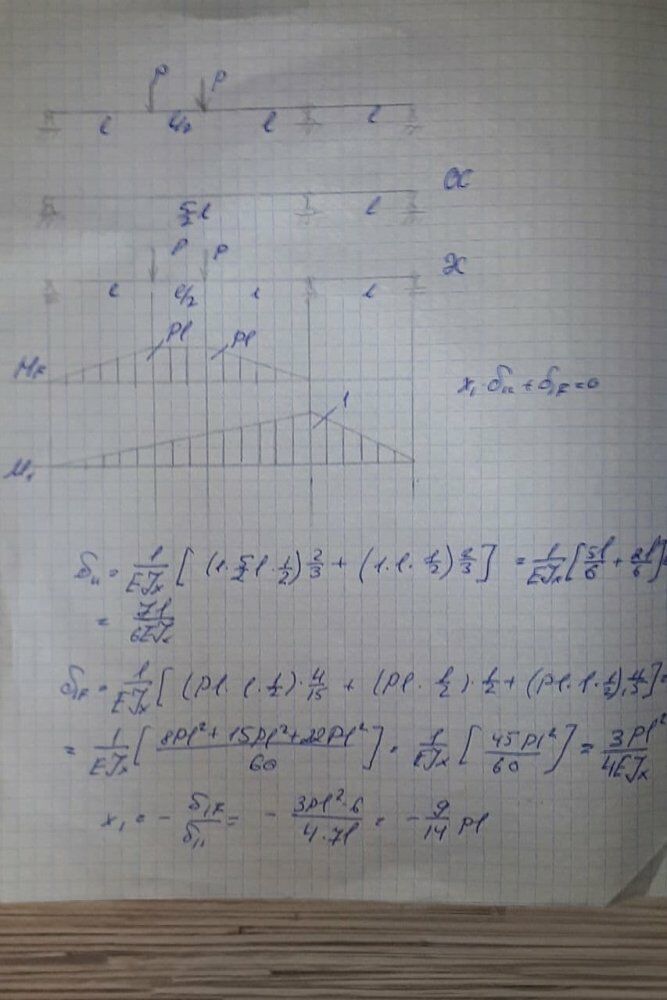 P P
l l/2 l l
α
5/2 l l
P P
Э
l l/2 l l
Pl Pl
M_F
x₁·δ₁₁+δ₁F=0
1
M₁
δ₁₁ = 1/EJx [ (1·5/2 l·1/2) 2/3 + (1·l·1/2) 2/3 ] = 1/EJx [5l/6 + 2l/6] =
= 7l/6EJx
δ₁F = 1/EJx [ (Pl·l·1/2)·4/15 + (Pl·l/2)·1/2 + (Pl·l·1/2)· ] =
= 1/EJx [ (8Pl²+15Pl²+22Pl²)/60 ] = 1/EJx [ 45Pl²/60 ] = 3Pl²/4EJx
x₁ = - δ₁F/δ₁₁ = - 3Pl²·6/4·7l = - 9/14 Pl